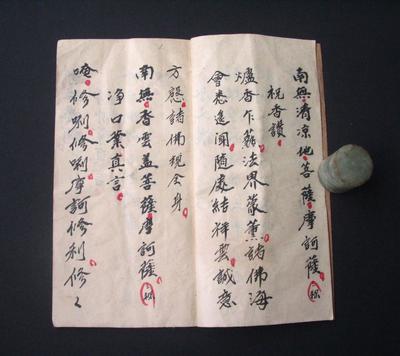 南無清凉地菩薩摩訶薩
祝香讚
爐香乍爇法界蒙薰諸佛海
會悉遥聞隨處結祥雲誠意
方慇諸佛現全身
南無香雲盖菩薩摩訶薩
净口業真言
唵修唎修唎摩訶修利修